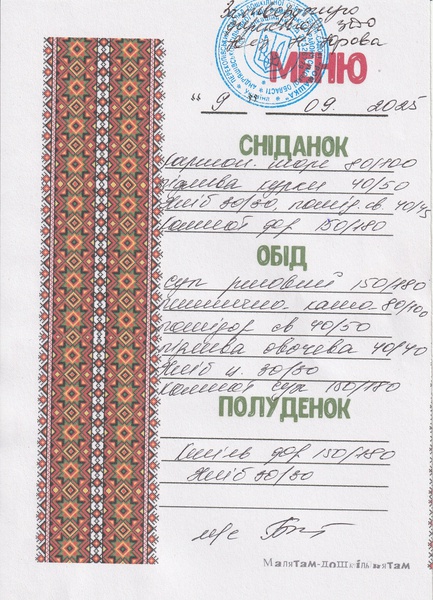 Затверджую
Директор ЗДО
МЕНЮ
"9" 09. 2025
СНІДАНОК
картоп. пюре 80/100
підлива курки 40/50
Хліб 30/30, помід. св 40/45
Компот 150/180
ОБІД
Суп рисовий 150/180
пшенична каша 80/100
помідор св 40/50
підлива овочева 40/40
Хліб 30/30
Компот сух 150/180
ПОЛУДЕНОК
Кисіль 150/180
Хліб 30/30
м/с
Малятам-дошкільнятам